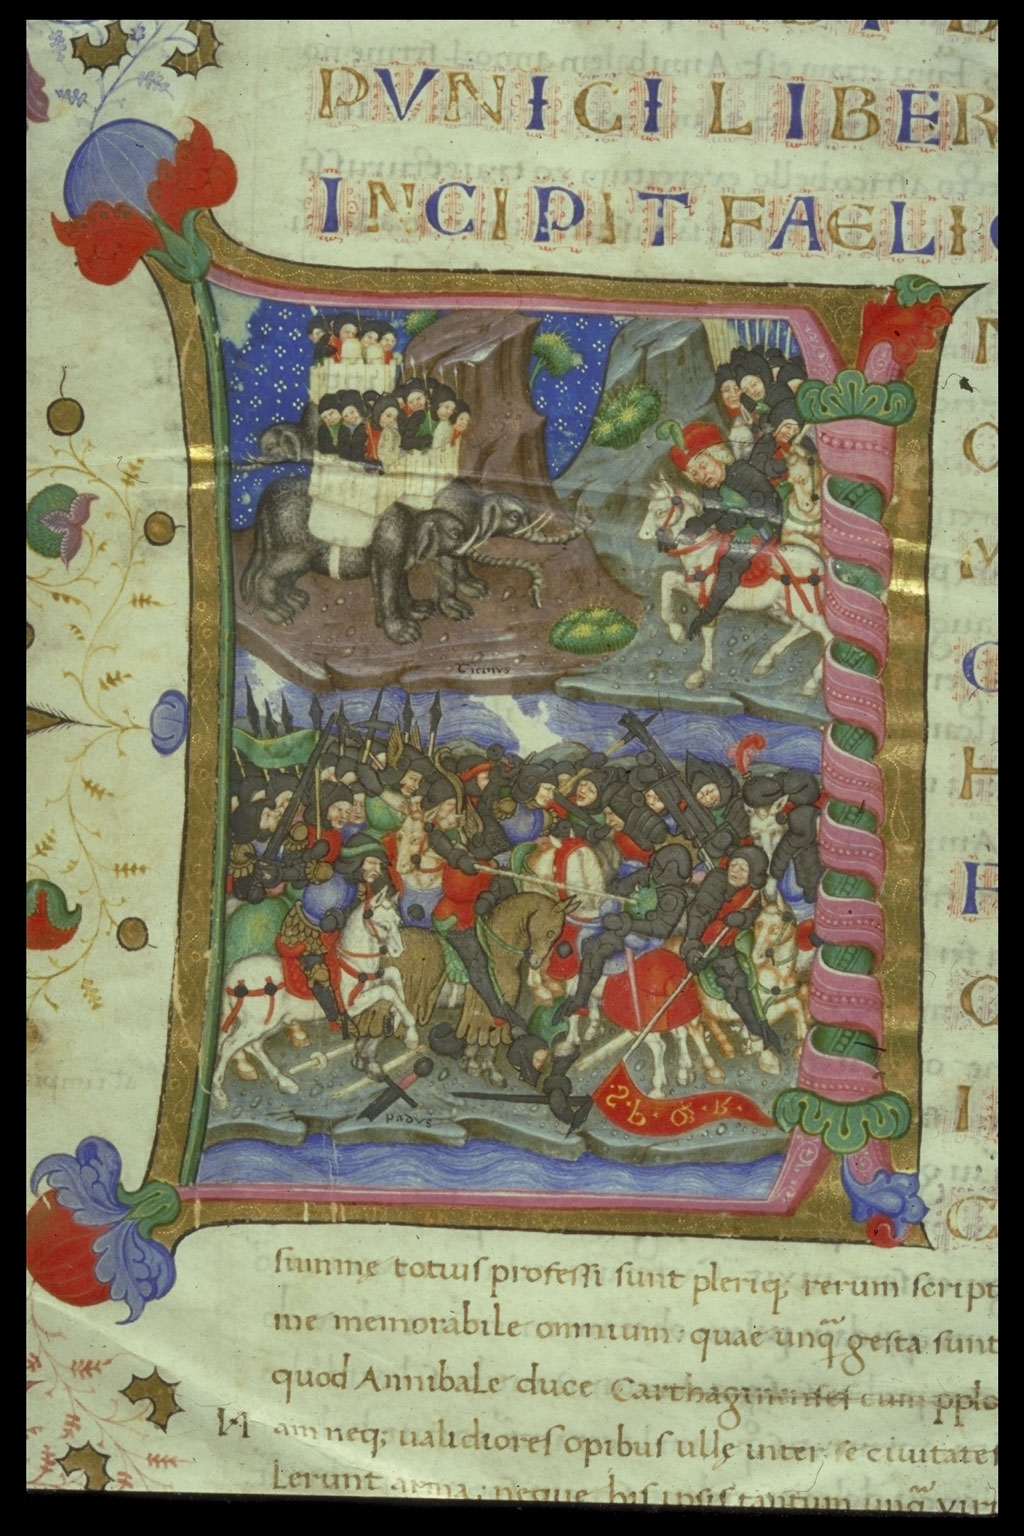 PVNICI LIBER
INCIPIT FAELIC
N
O
Ticinus
M
H
S·P·Q·R·
H
padvs
I
C
summę totius professi sunt pleriq; rerum script
me memorabile omnium: quae unq̃ gesta sunt
quod Annibale duce Carthaginenses cum pplo
N am neq; ualidiores opibus ullę inter se ciuitates
Lerunt arma: neque his ipsis tantum unq̃ viri